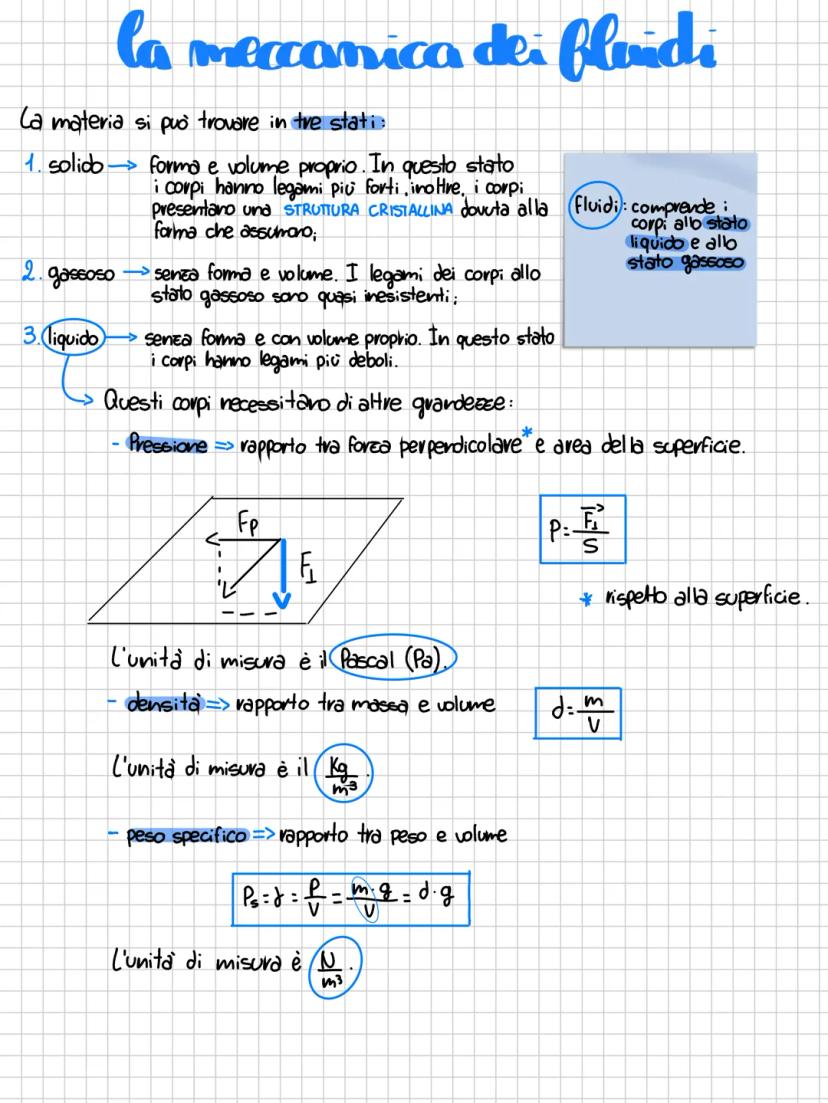 la meccanica dei fluidi
La materia si può trovare in tre stati:
1. solido → forma e volume proprio. In questo stato
i corpi hanno legami più forti, inoltre, i corpi
presentano una STRUTTURA CRISTALLINA dovuta alla
forma che assumono;
fluidi: comprende i
corpi allo stato
liquido e allo
stato gassoso
2. gassoso → senza forma e volume. I legami dei corpi allo
stato gassoso sono quasi inesistenti;
3. liquido → senza forma e con volume proprio. In questo stato
i corpi hanno legami più deboli.
Questi corpi necessitano di altre grandezze:
- Pressione => rapporto tra forza perpendicolare* e area della superficie.
Fp
F⊥
P = F⊥/S
* rispetto alla superficie.
L'unità di misura è il Pascal (Pa).
- densità => rapporto tra massa e volume
d = m/V
L'unità di misura è il Kg/m³.
- peso specifico => rapporto tra peso e volume
Ps = γ = P/V = m·g/V = d·g
L'unità di misura è N/m³.